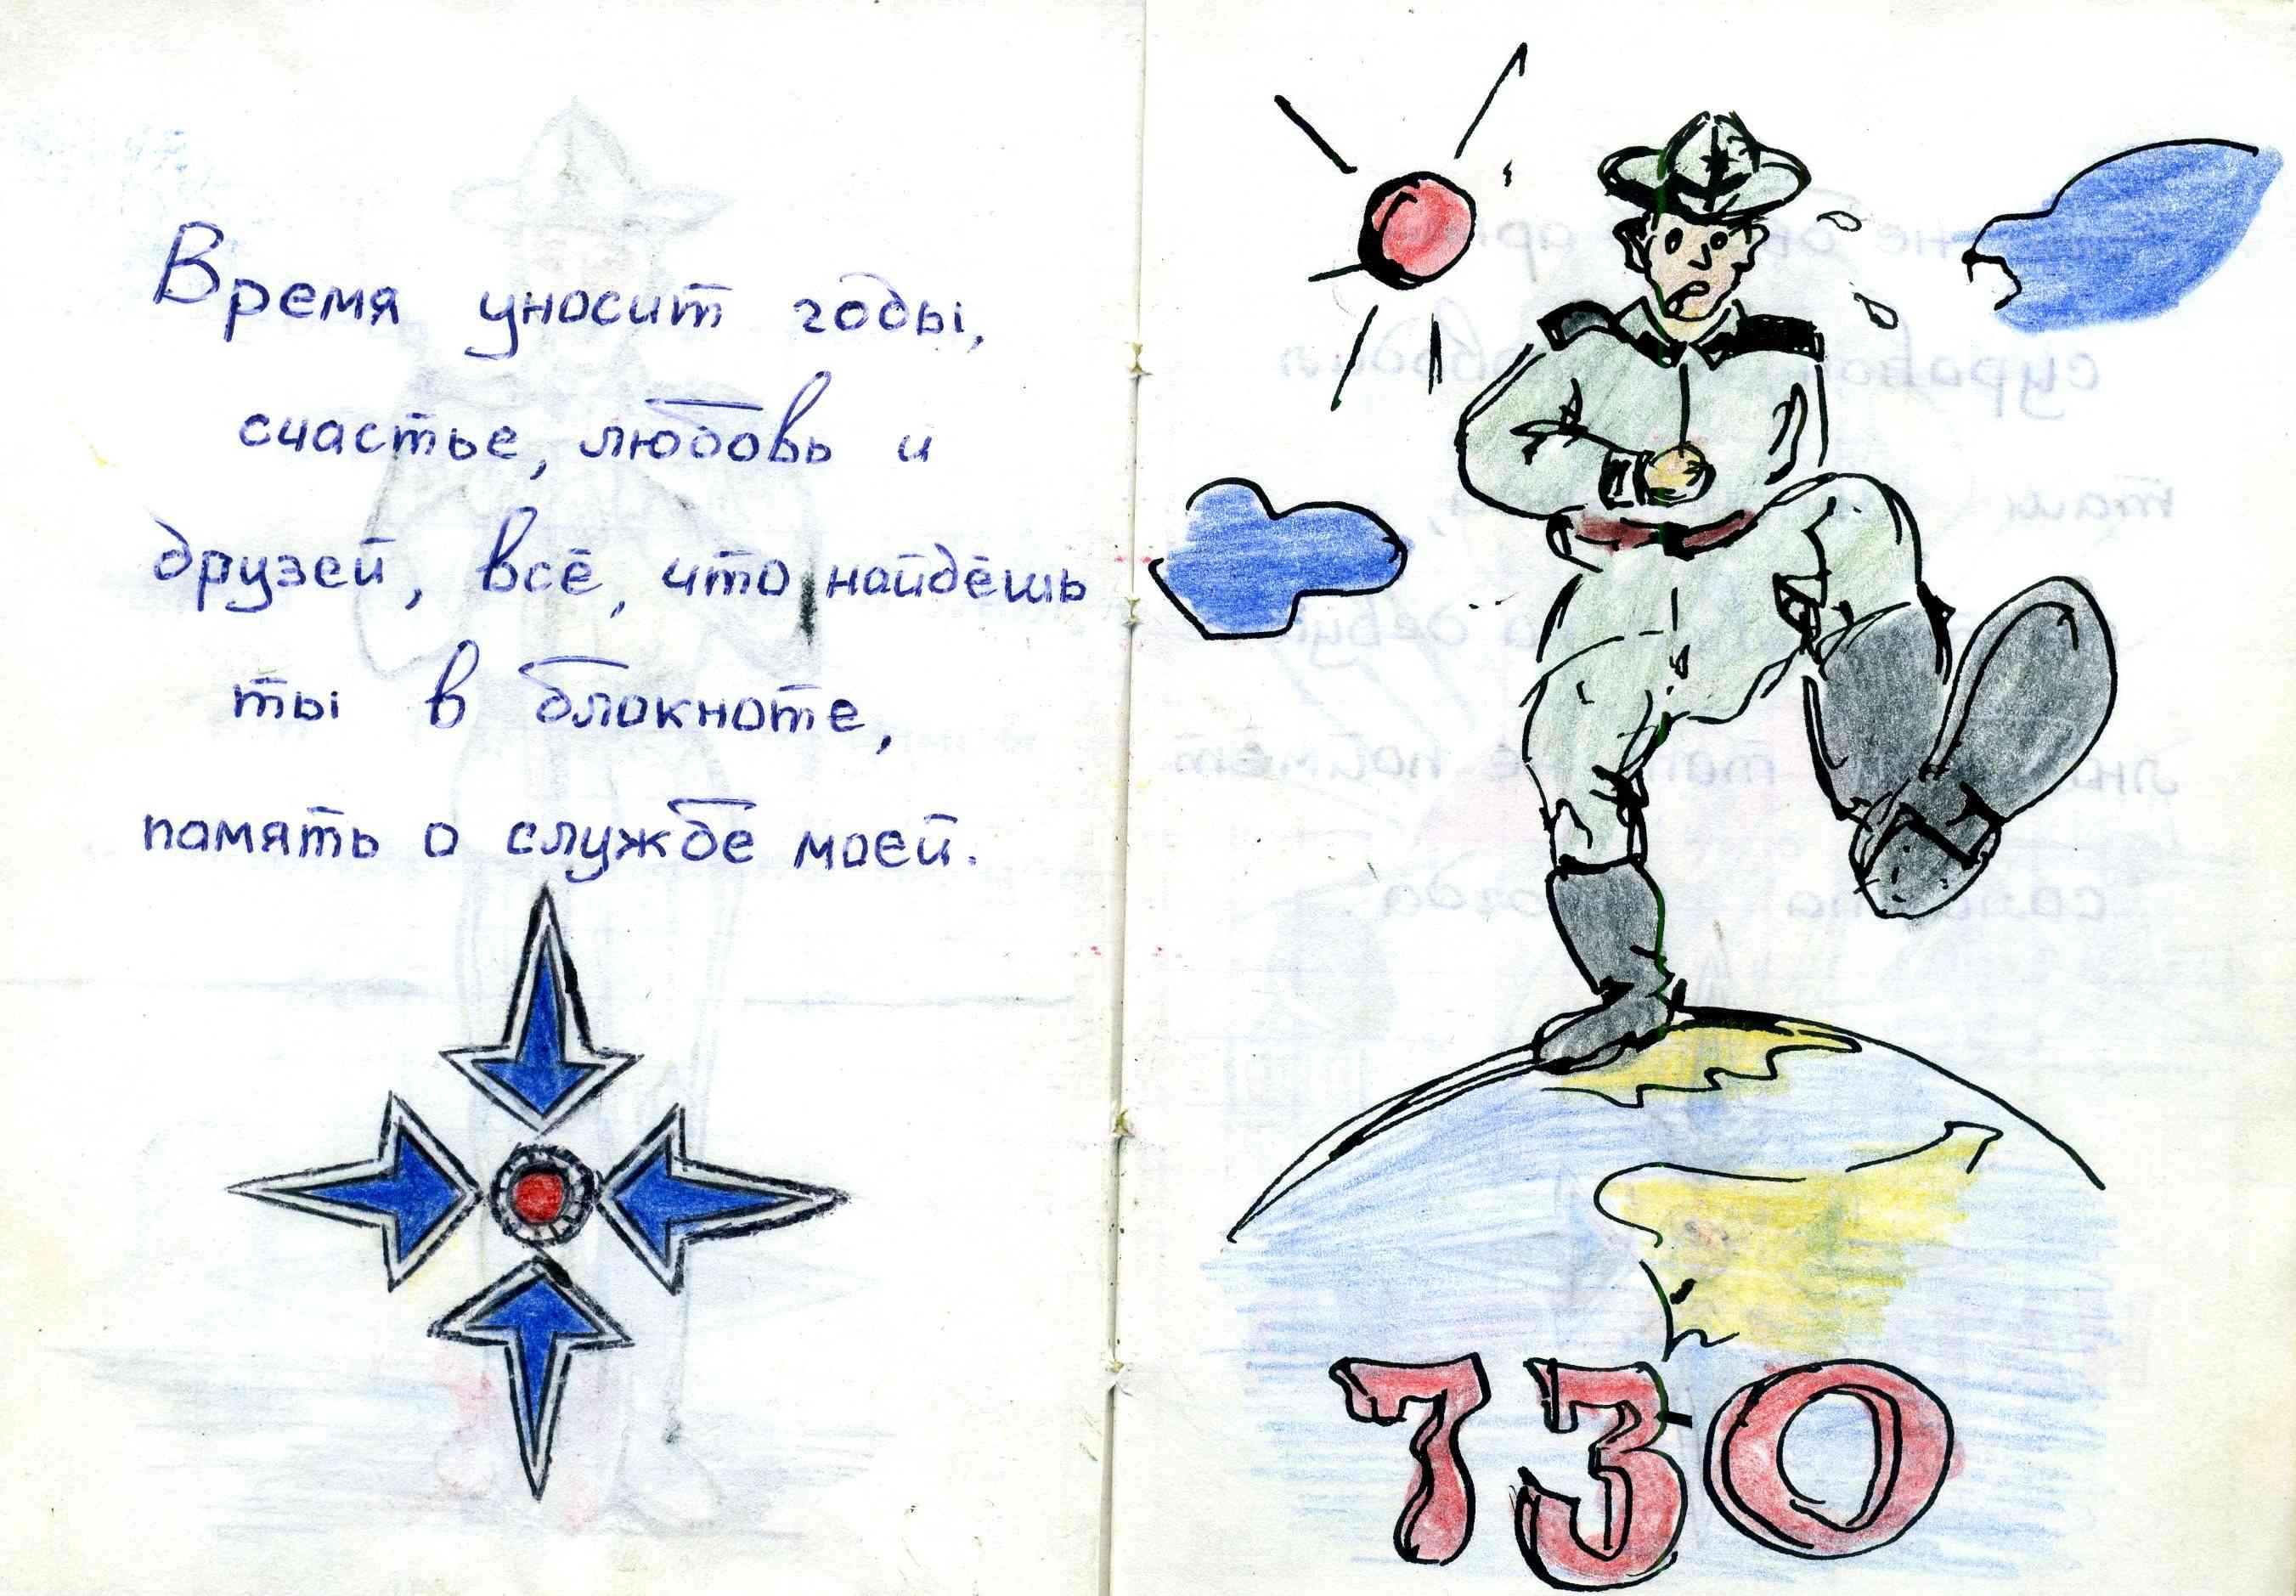 Время уносит годы,
счастье, любовь и
друзей, всё, что найдёшь
ты в блокноте,
память о службе моей.
730